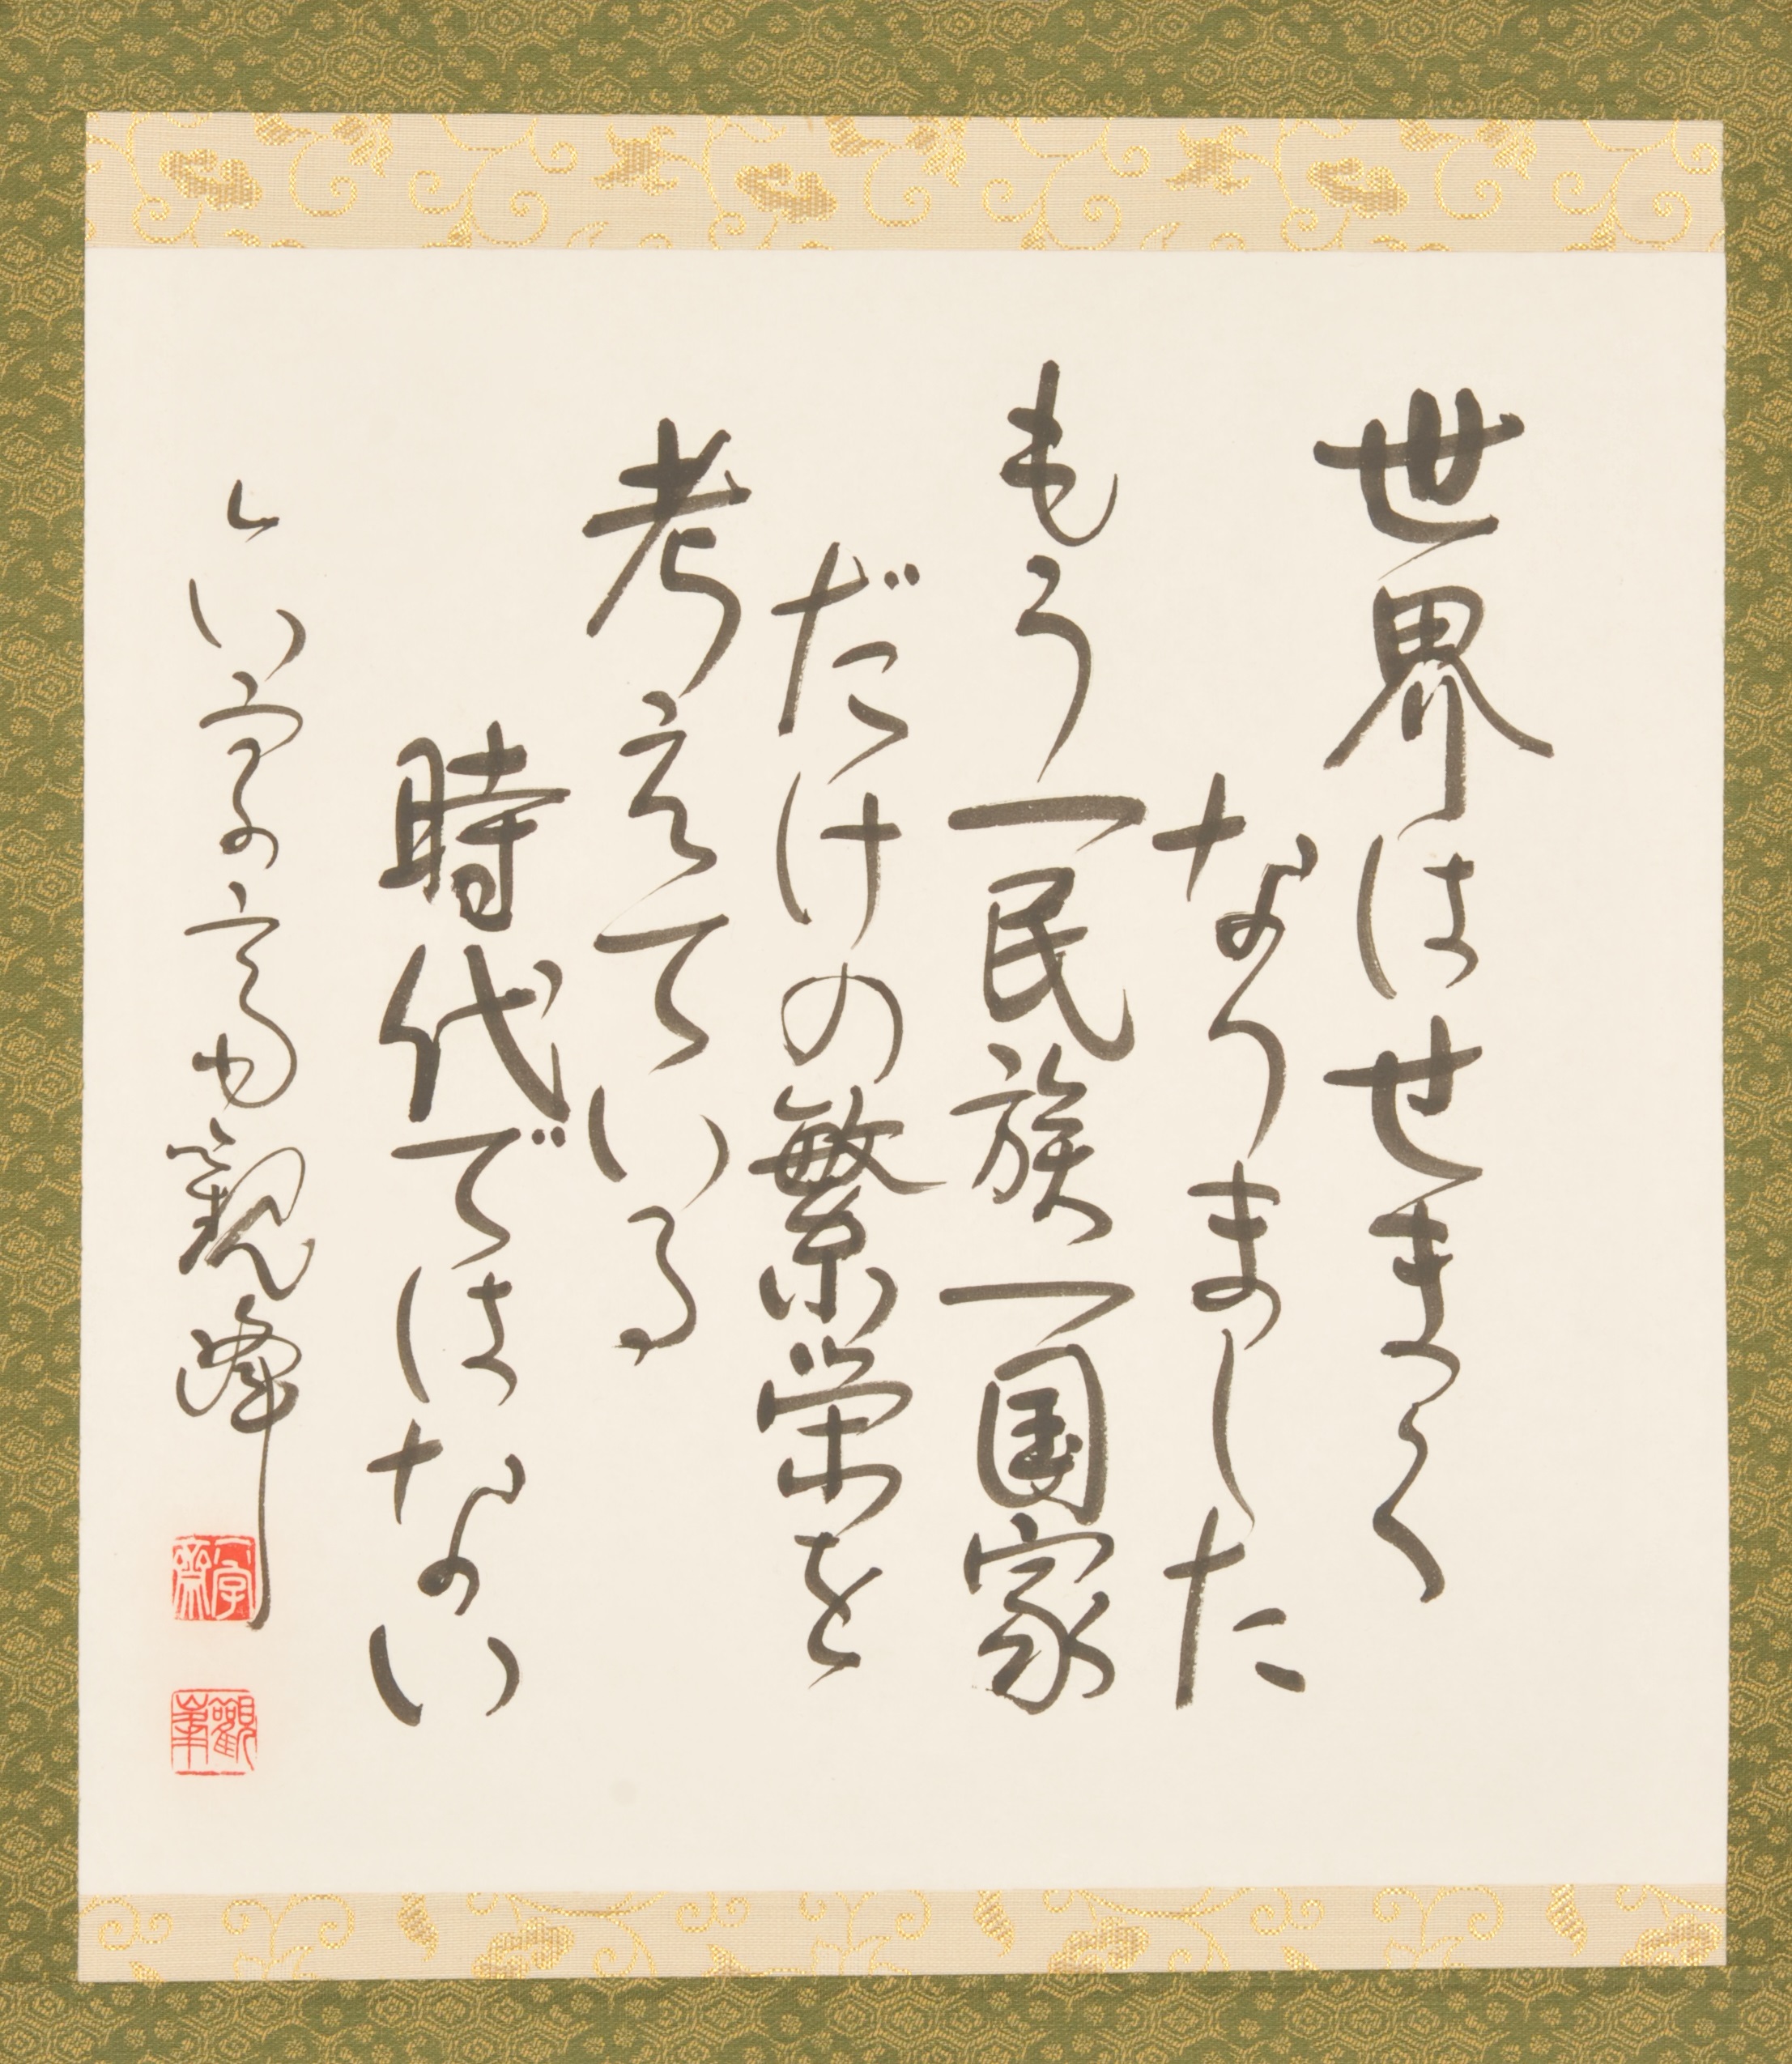 世界はせまく
なりました
もう一民族一国家
だけの繁栄を
考えている
時代ではない
観峰